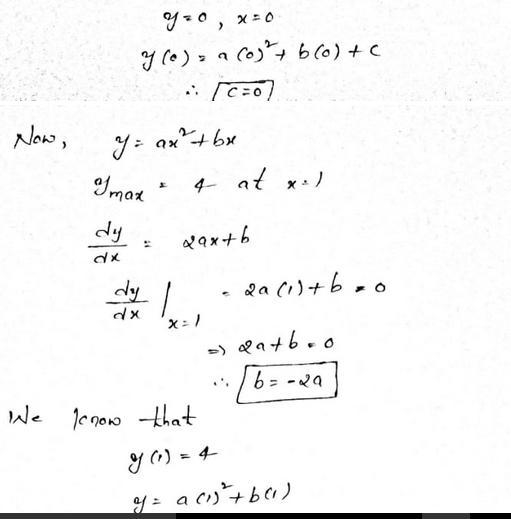 y=0, x=0
y(0) = a(0)²+ b(0) + c
∴ c=0
Now, y = ax²+bx
y max = 4 at x=1
dy/dx = 2ax+b
dy/dx | x=1 = 2a(1)+b = 0
=> 2a+b = 0
∴ b = -2a
We know that
y(1) = 4
y = a(1)²+b(1)